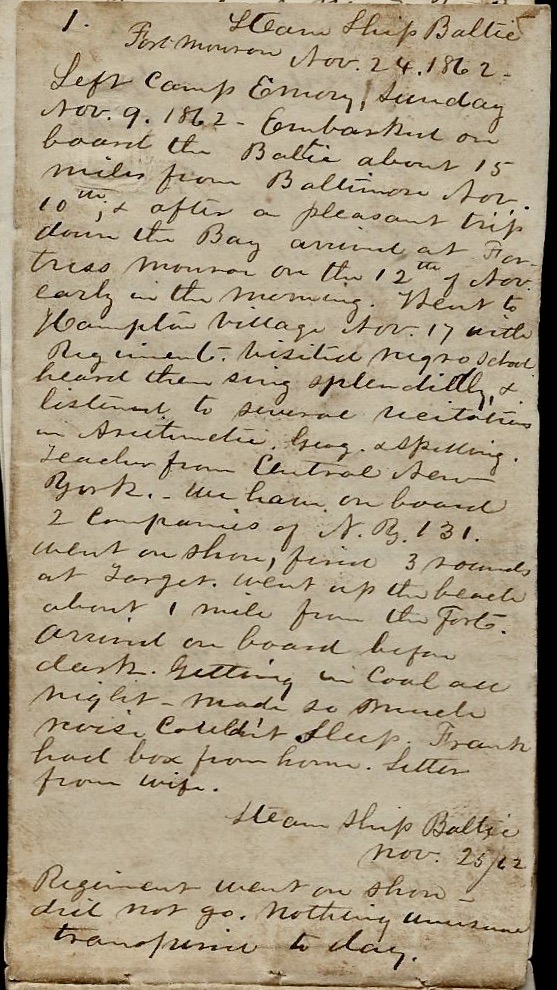 1. Steam Ship Baltic
Fort Monroe Nov. 24. 1862 -
Left Camp Emory, Sunday
Nov. 9. 1862 - Embarked on
board the Baltic about 15
miles from Baltimore Nov.
10th, & after a pleasant trip
down the Bay arrived at For-
tress Monroe on the 12th of Nov.
early in the morning. Went to
Hampton Village Nov. 17 with
Regiment. Visited negro School
heard them sing splendidly, &
listened to several recitations
in Arithmetic, Geog. & Spelling.
Teacher from Central New
York. - We have on board
2 Companies of N. Y. 131.
went on shore, fired 3 rounds
at Target. went up the beach
about 1 mile from the Forts.
arrived on board before
dark. Getting in Coal all
night - made so much
noise Couldn't Sleep. Frank
had box from home. Letter
from wife.
Steam Ship Baltic
Nov. 25/62
Regiment went on shore -
did not go. Nothing unusual
transpired to day.